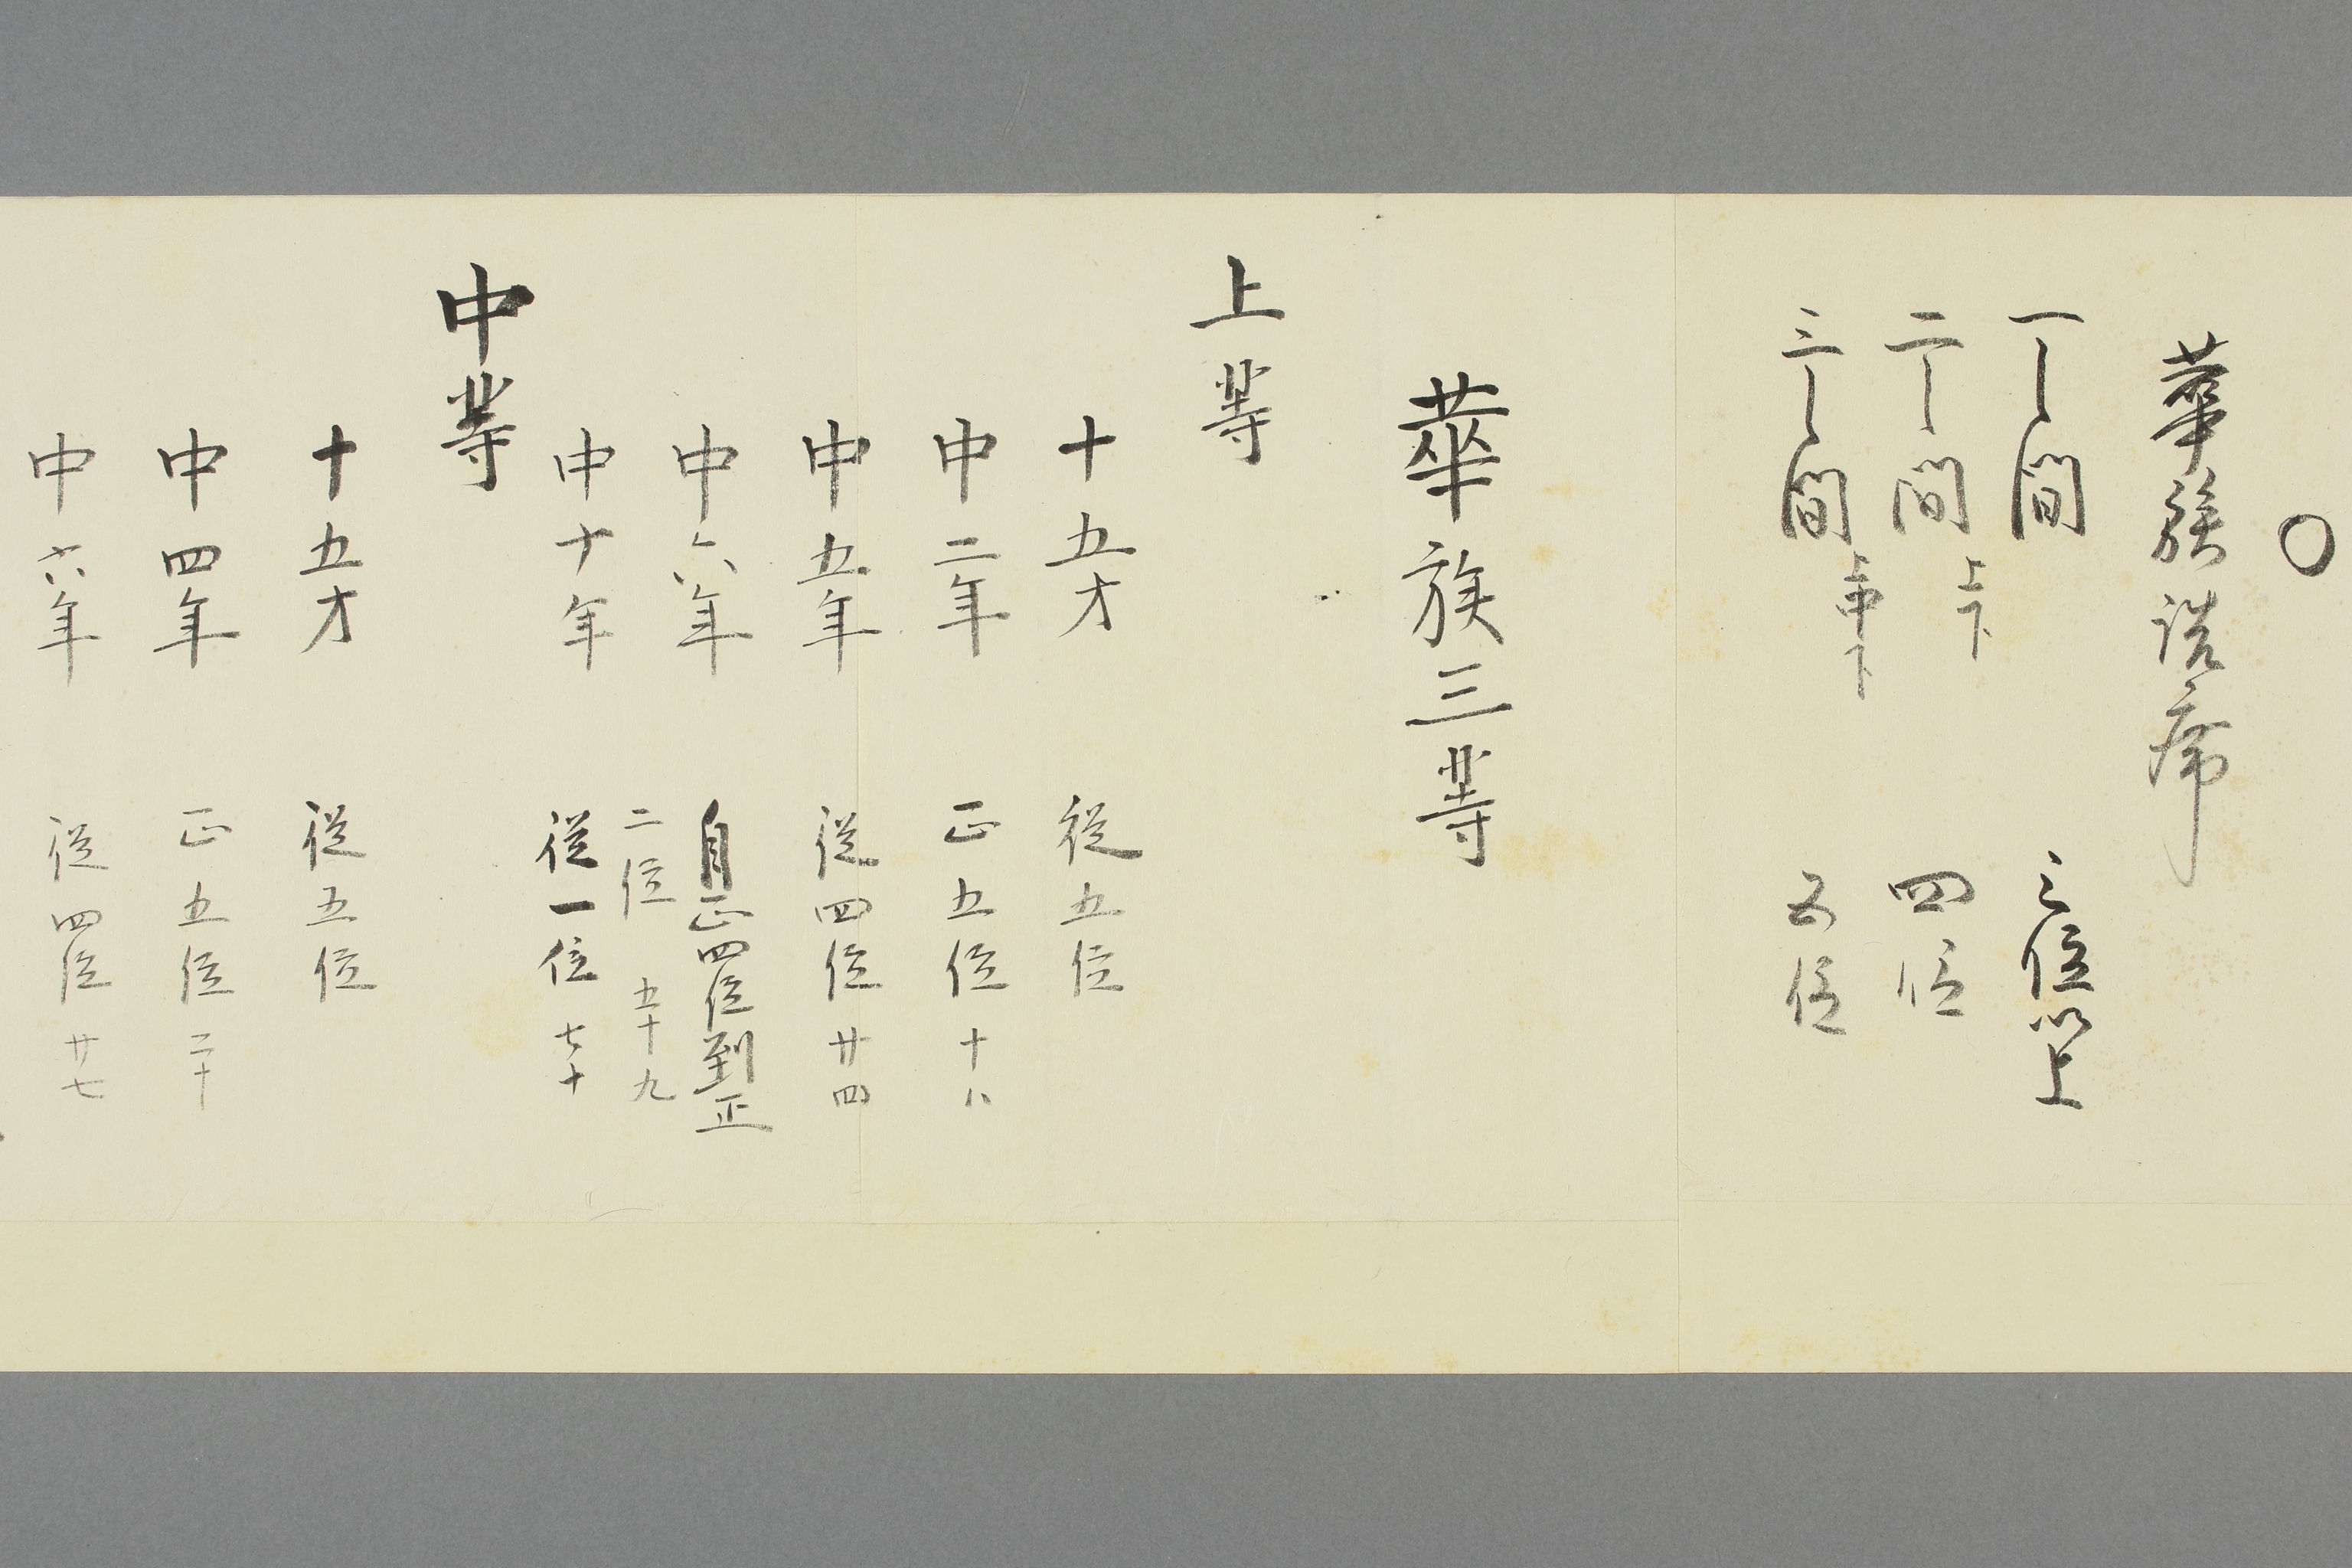 ○
華族詰席
一之間 三位以上
二之間上下 四位
三之間上中下 五位
華族三等
上等
十五才 従五位
中二年 正五位 十八
中五年 従四位 廿四
中六年 自正四位到正
二位 五十九
中十年 従一位 七十
中等
十五才 従五位
中四年 正五位 二十
中六年 従四位 廿七